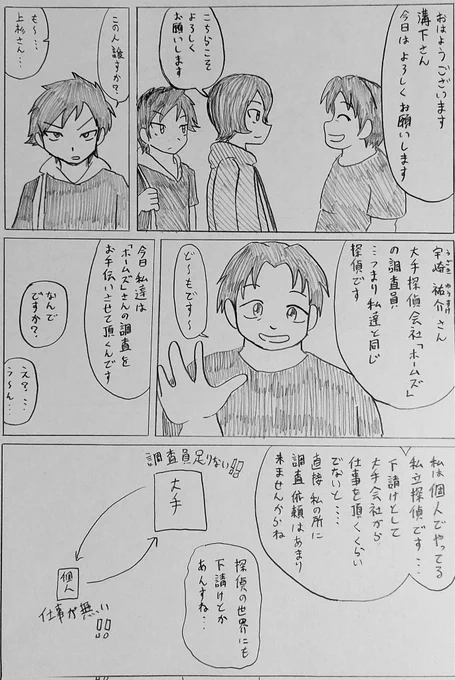 おはようございます
溝下さん
今日はよろしく
お願いします
こちらこそ
よろしく
お願いします
この人誰すか？
も～…
上杉さん…
うざき ゆうすけ
宇崎 祐介さん
大手探偵会社「ホームズ」
の調査員
…つまり私達と同じ
探偵です
ど～もです～
今日私達は
「ホームズ」さんの調査を
お手伝いさせて頂くんです
なんで
ですか？
え？…
う～ん…
私は個人でやってる
私立探偵です…
下請けとして
大手会社から
仕事を頂くくらい
でないと…
直接私の所に
調査依頼はあまり
来ませんからね
調査員足りない!!
大手
個人
仕事が無い!!
探偵の世界にも
下請けとか
あんすね…